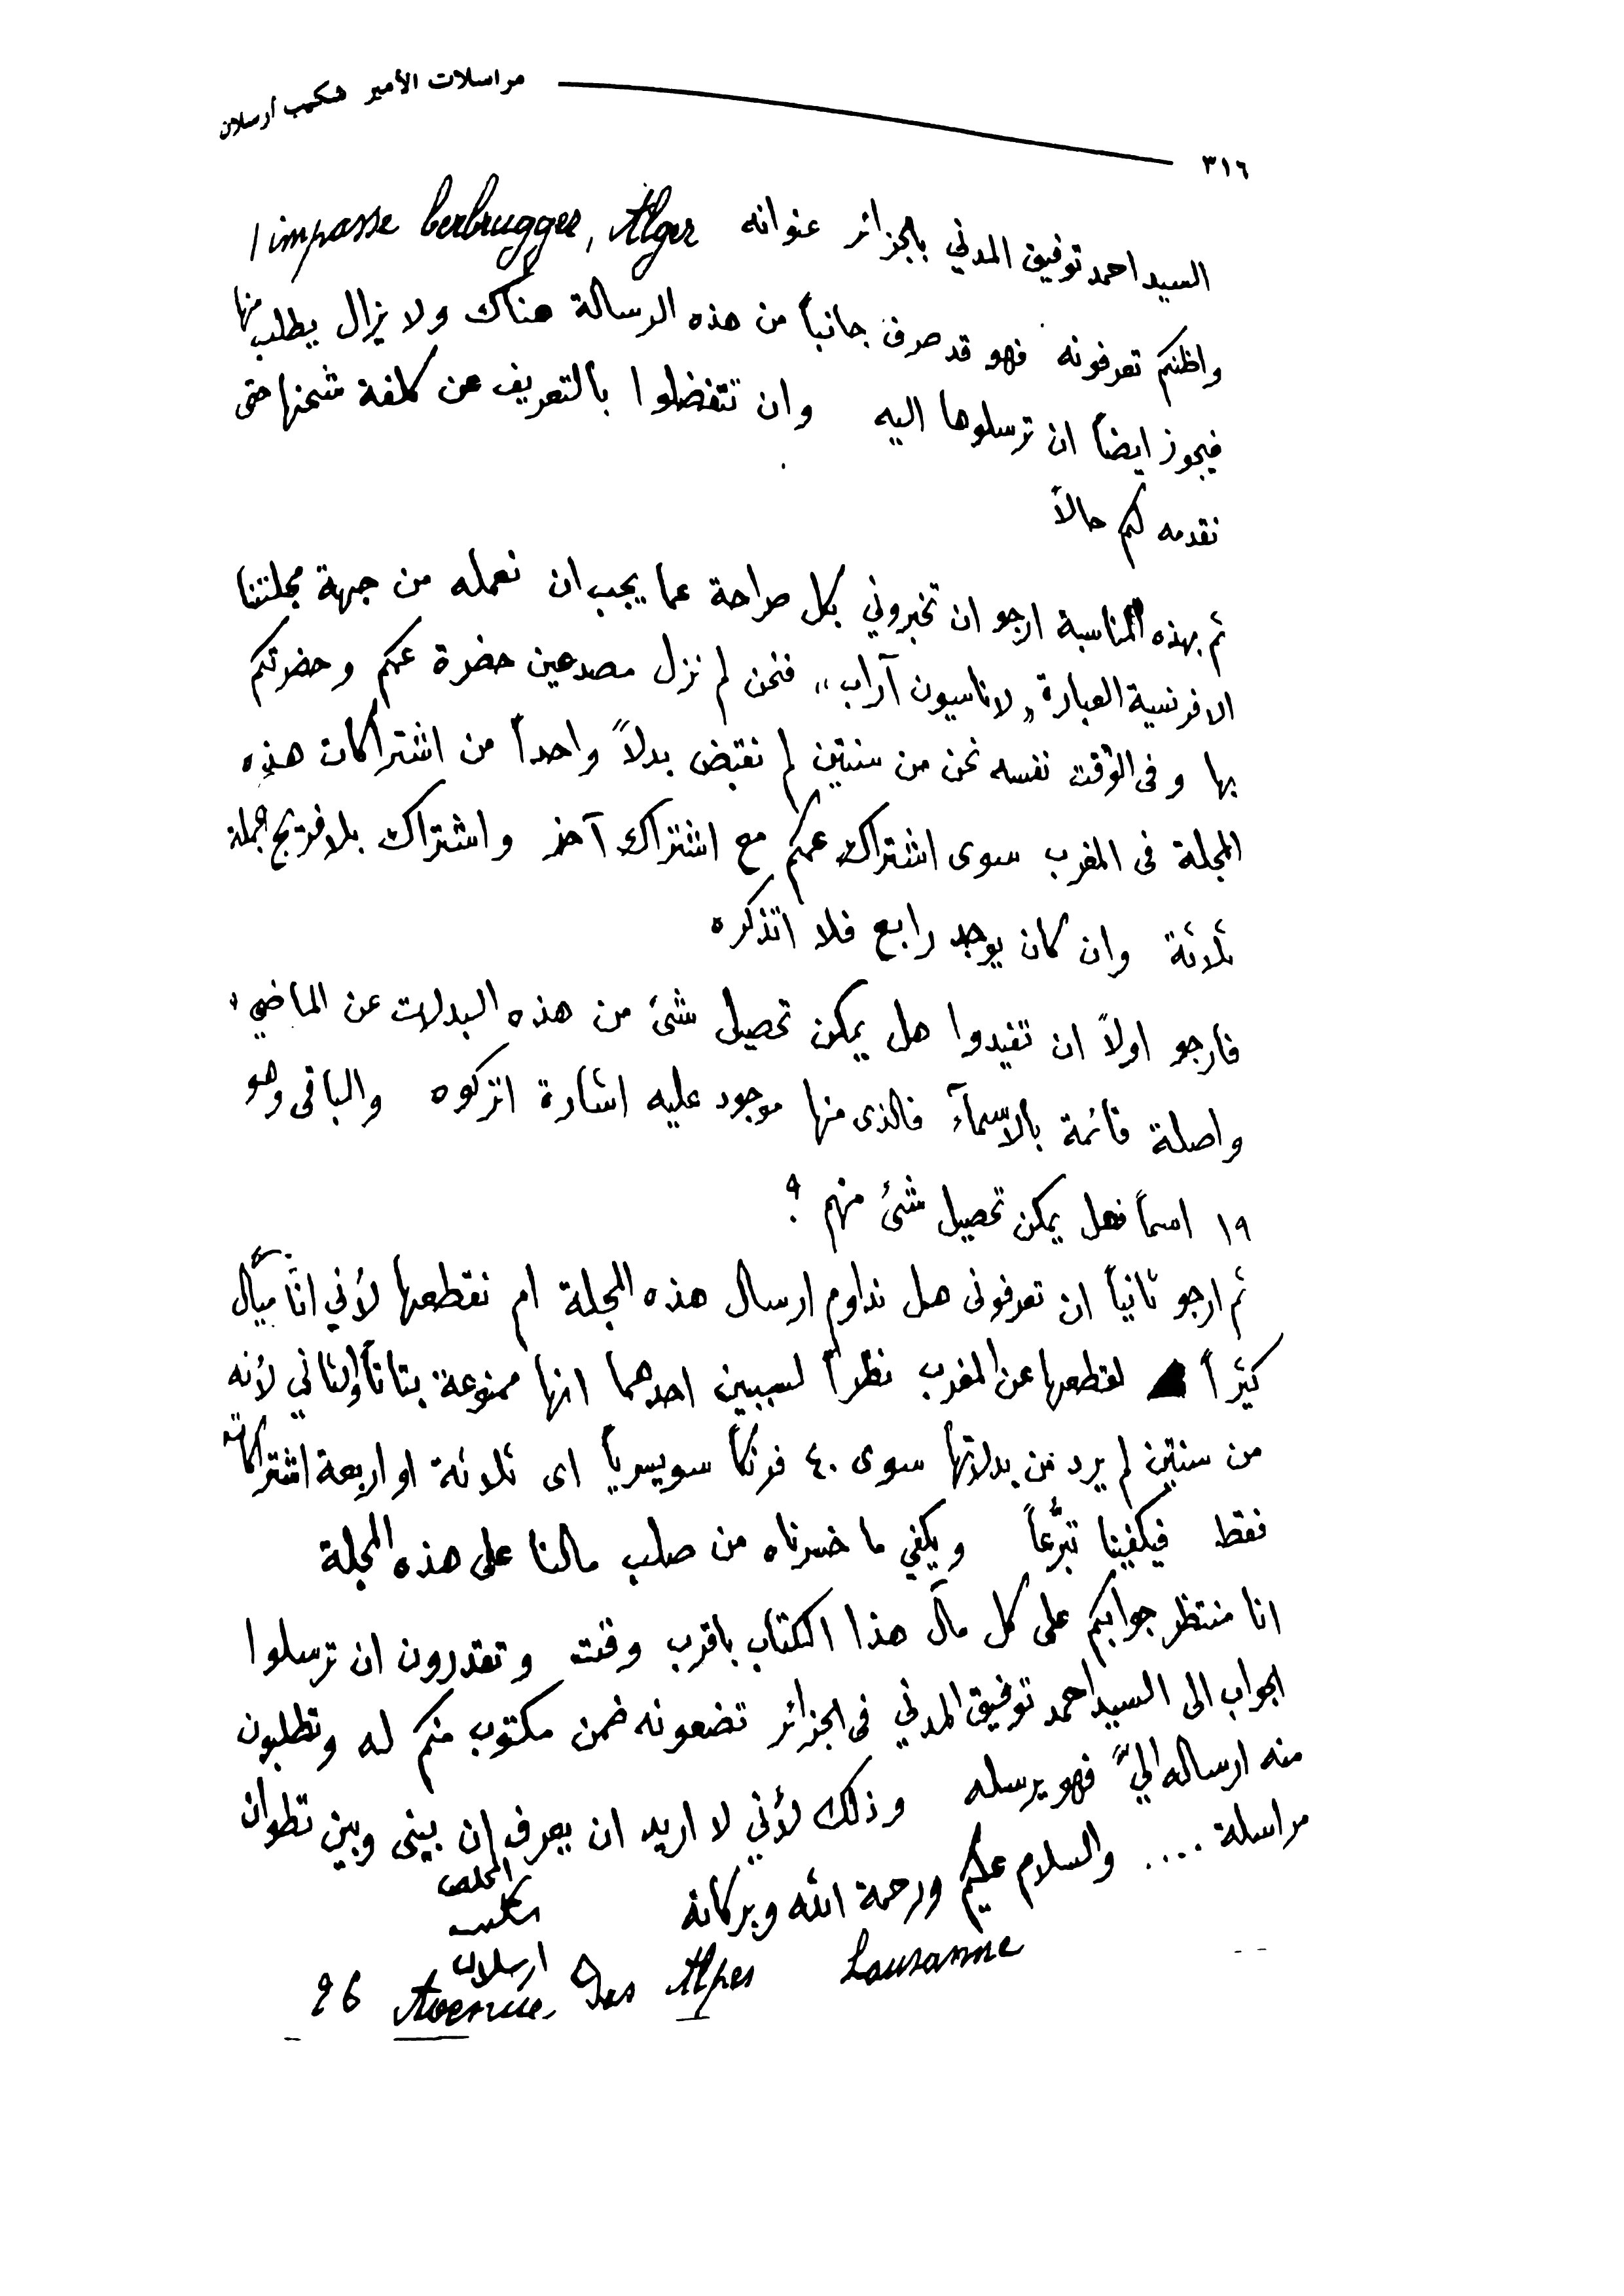 مراسلات الأمير شكيب أرسلان
٣١٦
السيد احمد توفيق المدني بالجزائر عنوانه 1 impasse berbrugger, Alger
واظنكم تعرفونه فهو قد صرف جانباً من هذه الرسالة هناك ولا يزال يطلب منها
فيجوز ايضاً ان ترسلوها اليه وان تتفضلوا بالتعريف عن كلفة شحنها حتى
نقدمه لكم حالاً
ثم بهذه المناسبة ارجو ان تخبروني بكل صراحة عما يجب ان نعمله من جهة مجلتنا
الافرنسية العبارة „لاناسيون آراب“ فنحن لم نزل مصدعين حضرة عمكم وحضرتكم
بها وفى الوقت نفسه نحن من سنتين لم نقبض بدلاً واحداً من اشتراكات هذه
المجلة فى المغرب سوى اشتراك عمكم مع اشتراك آخر واشتراك بلافريج الجملة
ثلاثة وان كان يوجد رابع فلا اتذكره
فارجو اولاً ان تفيدوا هل يمكن تحصيل شئ من هذه البدلات عن الماضي،
واصلة قائمة بالاسمآء فالذى منها موجود عليه اشارة اتركوه والباقى وهو
١٩ اسماً فهل يمكن تحصيل شئ منهم ؟
ثم ارجو ثانياً ان تعرفونى هل نداوم ارسال هذه المجلة ام نقطعها لأني انا ميّال
كثيراً لقطعها عن المغرب نظراً لسببين احدهما انها ممنوعة بتاتاً والثاني لأنه
من سنتين لم يرد من بدلاتها سوى ٤٠ فرنكاً سويسرياً اى ثلاثة او اربعة اشتراكات
فقط فيكفينا تبرّعاً ويكفي ما خسرناه من صلب مالنا على هذه المجلة
انا منتظر جوابكم على كل مآل هذا الكتاب باقرب وقت وتقدرون ان ترسلوا
الجواب الى السيد احمد توفيق المدني فى الجزائر تضعونه ضمن مكتوب منكم له وتطلبون
منه ارساله اليّ فهو يرسله وذلك لأني لا اريد ان يعرف ان بينى وبين تطوان
مراسلة .... والسلام عليكم ورحمة الله وبركاته
المخلص
شكيب
ارسلان
26 Avenue Des Alpes Lausanne